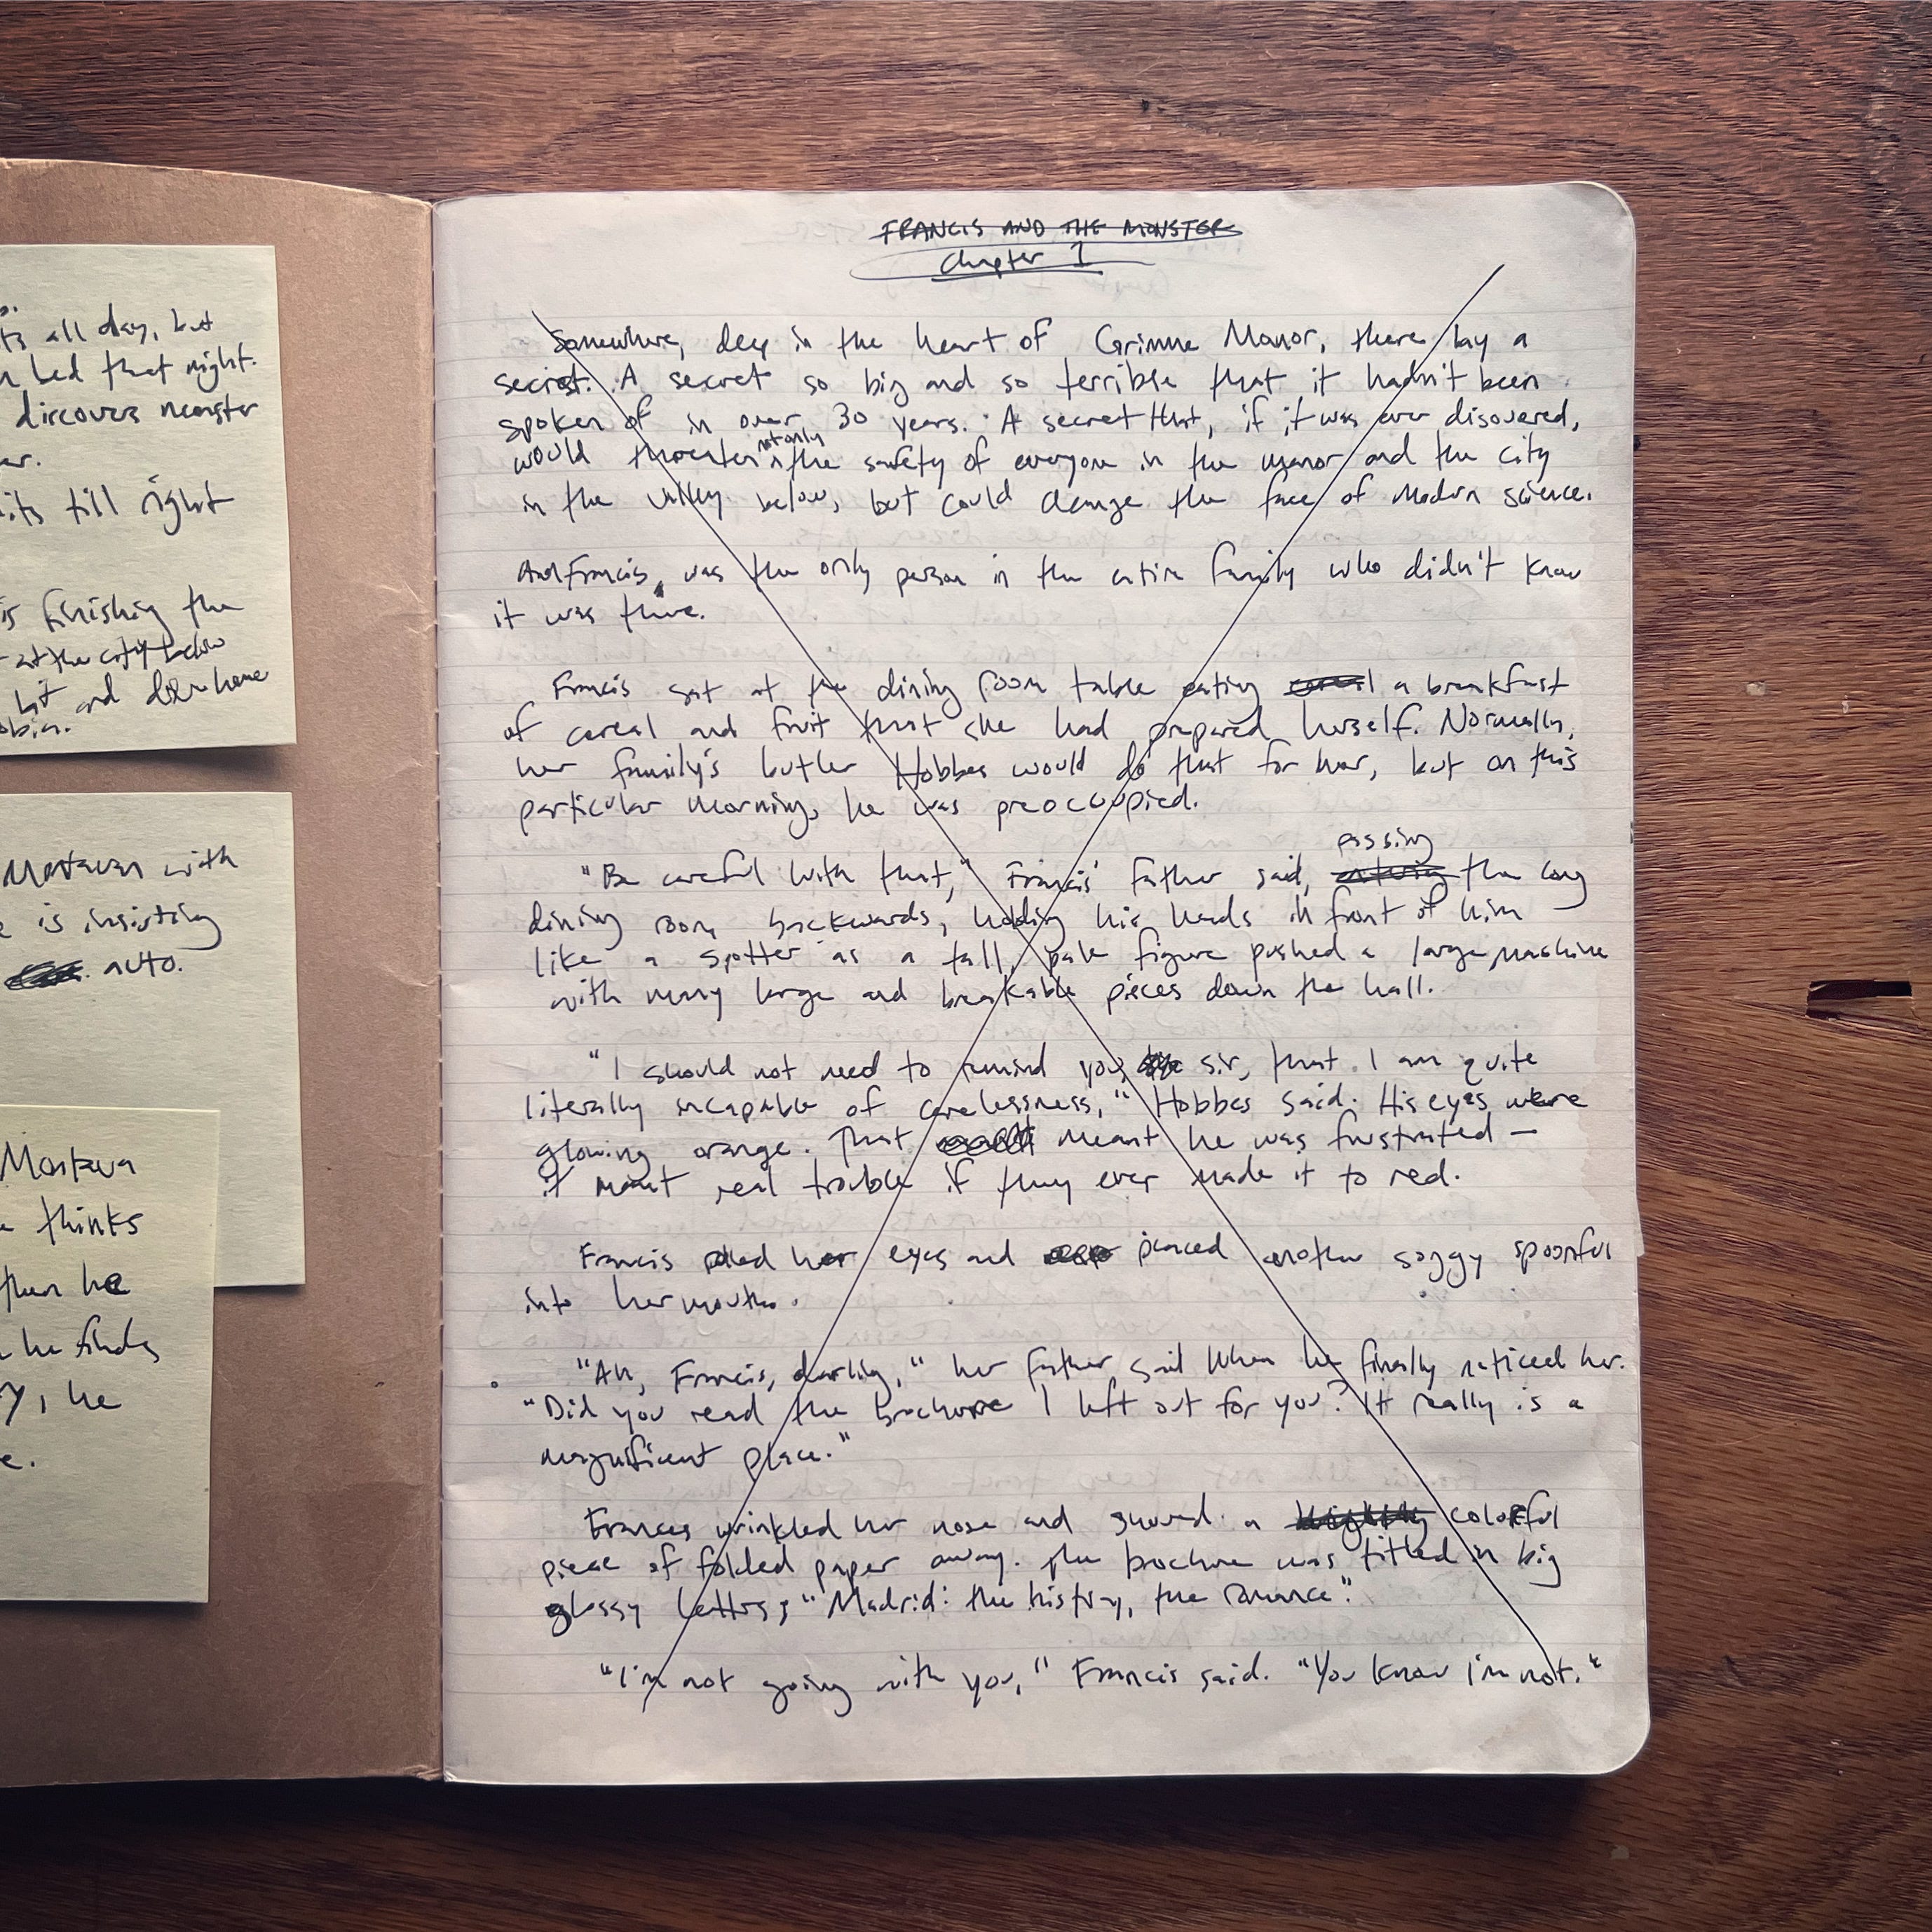 ts all day, but
bed that night.
discovers monster
er.
its till right
is finishing the
at the city below
bit and
obin.
with
is insisting
auto.
thinks
then he
he finds
y, he
e.
FRANCIS AND THE MONSTER
Chapter 1
Somewhere, deep in the heart of Grimme Manor, there lay a
secret. A secret so big and so terrible that it hadn't been
spoken of in over 30 years. A secret that, if it was ever disovered,
would threaten not only the safety of everyone in the manor and the city
in the valley below, but could change the face of modern science.
And Francis, was the only person in the entire family who didn't know
it was there.
Francis sat at the dining room table eating cereal a breakfast
of cereal and fruit that she had prepared herself. Normally,
her family's butler Hobbes would do that for her, but on this
particular morning, he was preoccupied.
"Be careful with that," Francis' father said, passing entering the long
dining room backwards, holding his hands in front of him
like a spotter as a tall, pale figure pushed a large machine
with many large and breakable pieces down the hall.
"I should not need to remind you, sir, that I am quite
literally incapable of carelessness," Hobbes said. His eyes were
glowing orange. That meant he was frustrated —
it meant real trouble if they ever made it to red.
Francis rolled her eyes and another soggy spoonful
into her mouth.
"Ah, Francis, darling," her father said when he finally noticed her.
"Did you read the brochure I left out for you? It really is a
magnificent place."
Frances wrinkled her nose and shoved a colorful
piece of folded paper away. The brochure was titled in big
glossy letters, "Madrid: the history, the romance".
"I'm not going with you," Francis said. "You know I'm not."